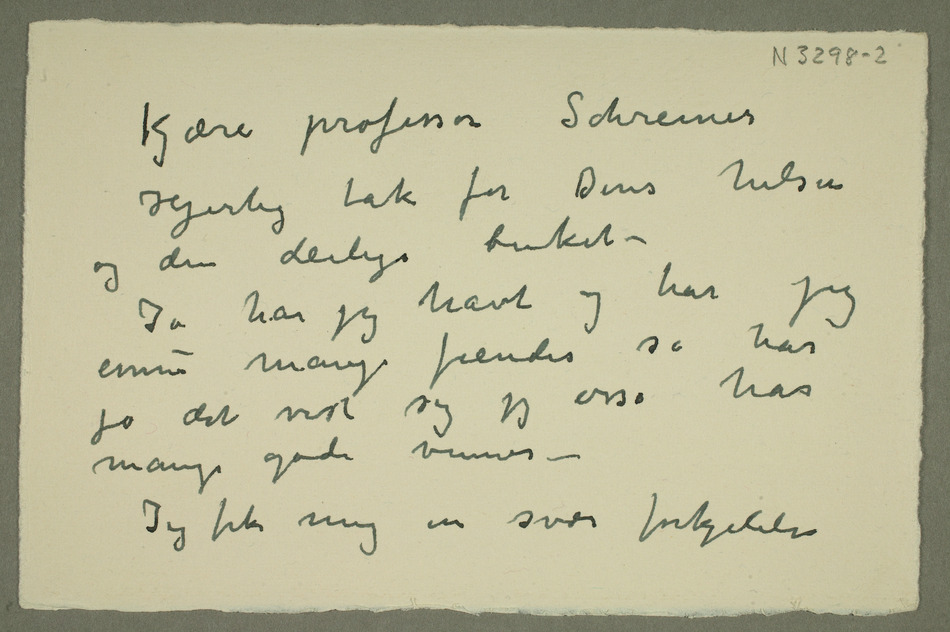 N 3298-2
Kjære professor Schreiner
Hjertlig tak for Deres hilsen
og den deilige buket –
Ja har jeg havt og har jeg
ennu mange fiender så har
jo det vist seg jeg osså har
mange gode venner –
Jeg fik meg en svær forkjølelse